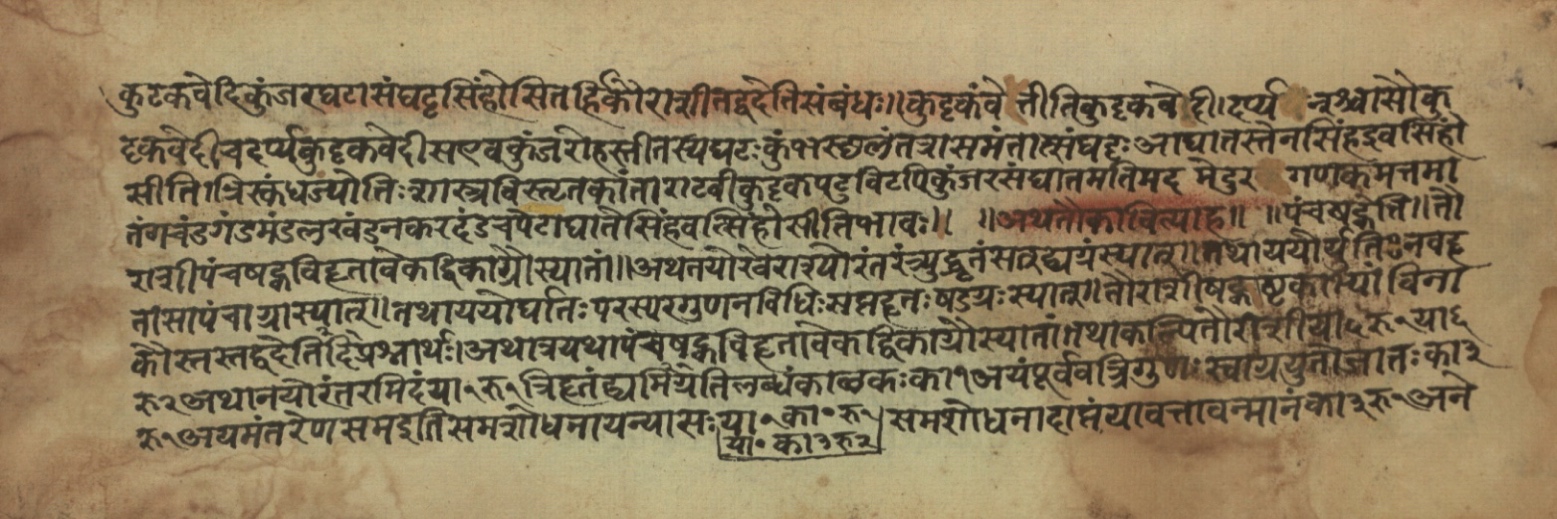 कुटकवेदिकुंजरघटासंघट्टसिंहोसितर्हिकौराशीतद्वदेतिसंबंधः॥कुट्टकंवे त्तीतिकुट्टकवे दी।दर्प्य न्नश्चासौकु
ट्टकवेदीचदर्प्यकुट्टकवेदीसएवकुंजरोहस्तीतस्यघटःकुंभस्छलंतत्रासमंतात्संघट्टःआघातस्तेनसिंहइवसिंहो
सीति।त्रिस्कंधज्योतिःशास्त्रविस्तृतकांताराटवीकुट्टकपटुविटपिकुंजरसंघातमतिमद मेदुर गणकमत्तमा
तंगचंडगंडमंडलखंडनकरदंडचपेटाघातेसिंहवत्सिंहोसीतिभावः॥ ॥अथतौकावित्याह॥ ॥पंचषट्केति॥तौ
राशीपंचषट्कविहृतावेकद्विकाग्रौस्याताम्॥अथतयोरेवराश्योरंतरंत्र्युद्धृतंसत्द्व्यग्रंस्यात्॥तथाययोर्युतिःनवहृ
तासापंचाग्रास्यात्॥तथाययोर्घातिःपरस्परगुणनविधिःसप्तहृतःषडग्रःस्यात्॥तौराशीषट्काष्टकाभ्यांविना
कौस्तस्तद्वदेतिद्विप्रश्नार्थः।अथात्रयथापंचषट्कविहृतावेकद्विकाग्रौस्यातांतथाकल्पितौराशीया५रू१या६
रू२अथानयोरंतरमिदंया१रू१त्रिहृतंद्व्यग्रमितिलब्धंकालकःका१अयंपूर्ववत्त्रिगुणःस्वाग्रयुतोजातःका३
रू१अयमंतरेणसमइतिसमशोधनायन्यासःया१का०रू१ समशोधनादाप्तंयावत्तावन्मानंका३रू१अने
या०का३रू२